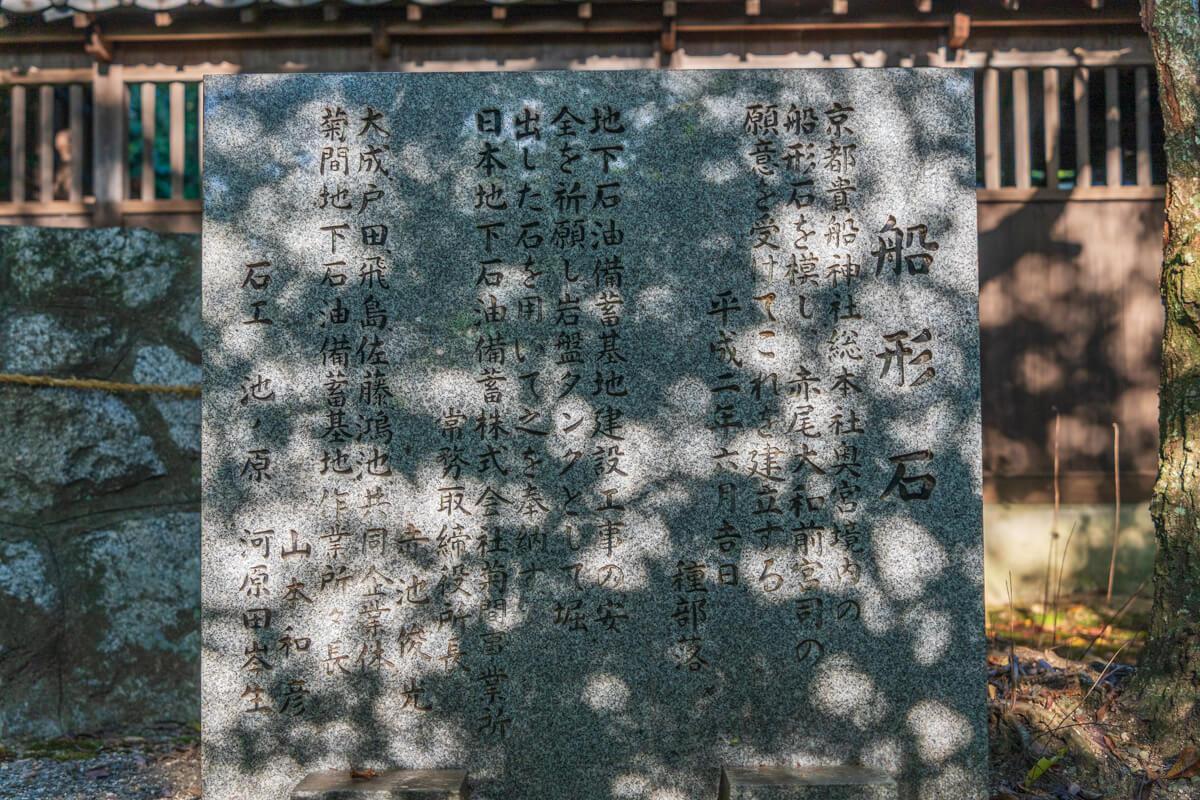 船形石
京都貴船神社総本社奥宮境内の
船形石を模し 赤尾大和前宮司の
願意を受けてこれを建立する
平成二年六月吉日
種部落
地下石油備蓄基地建設工事の安
全を祈願し岩盤タンクとして堀
出した石を用いて之を奉納す
日本地下石油備蓄株式会社菊間事業所
常務取締役所長
寺池俊光
大成戸田飛島佐藤鴻池共同企業体
菊間地下石油備蓄基地作業所々長
山本和彦
石工 池ノ原 河原田峯生